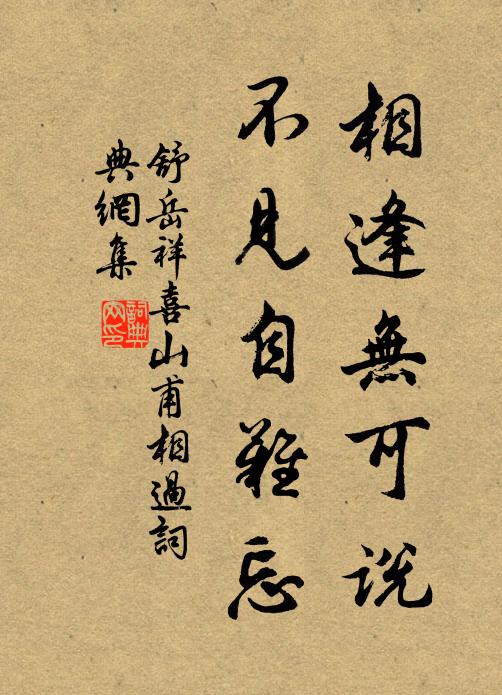 相逢無可説
不見自難忘
舒岳祥喜山甫相過詞
典網集
詞典
网印